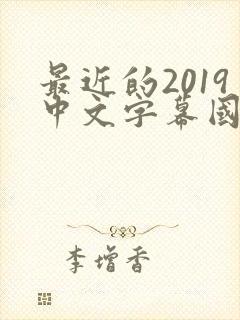 最近的2019
中文字幕國
李增香